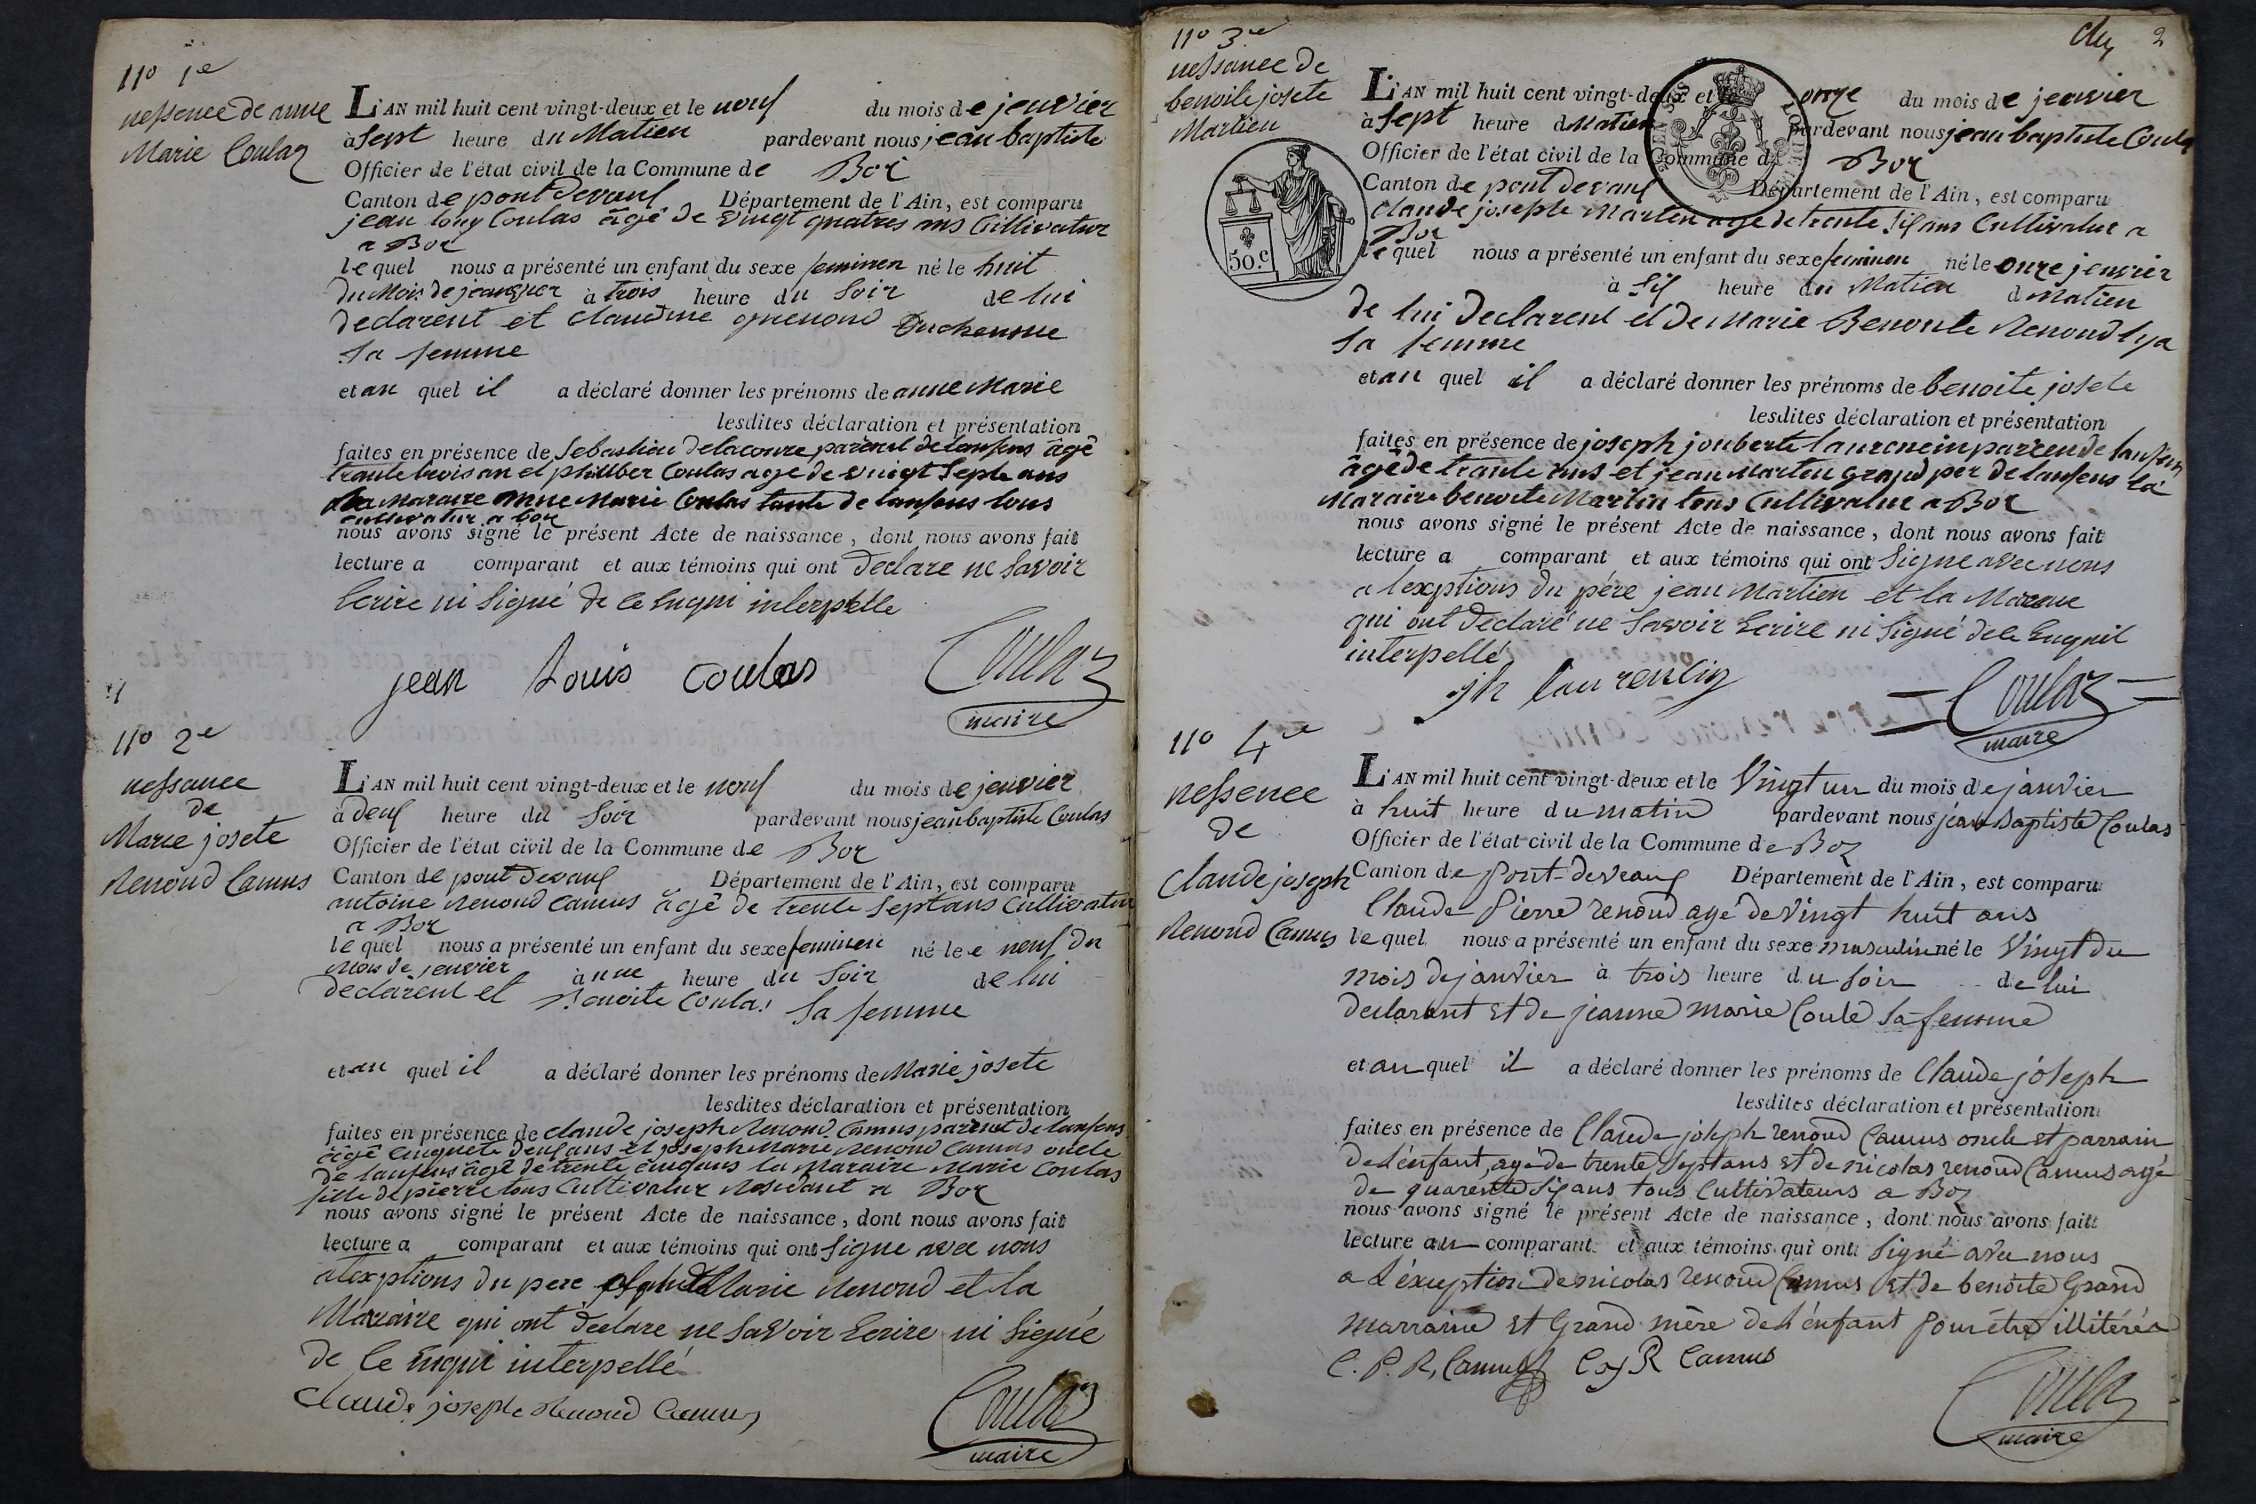 11º 1e
nessence de anne
Marie Coulaz
L'AN mil huit cent vingt-deux et le neuf du mois de jeuvier
à Sept heure du Matien pardevant nous jean baptiste
Officier de l'état civil de la Commune de Boz
Canton de pont devaux Département de l'Ain, est comparu
jean Louy Coulas âgé de vingt quatres ans Cultivatur
a Boz
lequel nous a présenté un enfant du sexe feminen né le huit
du Mois de à trois heure du Soir de lui
declarent et claudine Duchenne
Sa femme
et au quel il a déclaré donner les prénoms de anne Marie
lesdites déclaration et présentation
faites en présence de Sebastien delacoure de lansens âgé
trante trois an et philber Coulas age de vingt Septe ans
Maraire anne Marie Coulas tante de lansens tous
cultivatur a boz
nous avons signé le présent Acte de naissance, dont nous avons fait
lecture a comparant et aux témoins qui ont declare ne Savoir
Ecrire ni Signé de ce Enqui interpelle
jean Louis coulas
Coulaz
maire
11º 2e
nessance
de
Marie josete
Renond Camus
L'AN mil huit cent vingt-deux et le neuf du mois de jeuvier
à deux heure du Soir pardevant nous jean baptiste Coulas
Officier de l'état civil de la Commune de Boz
Canton de pont devaux Département de l'Ain, est comparu
antoine Renond Camus âgé de trente Sept ans Cultivatur
a Boz
lequel nous a présenté un enfant du sexe feminen né le neuf du
Mois de jenvier à une heure du Soir de lui
declarent et Benoite Coulas Sa femme
et au quel il a déclaré donner les prénoms de Marie josete
lesdites déclaration et présentation
faites en présence de claude joseph Renond Camus de lansens
âgé cinquete deux ans et joseph Marie Renond Camus oncle
de lansens âgé de trente cinq ans la Maraire Marie Coulas
fille de pierre tous Cultivatur Residant a Boz
nous avons signé le présent Acte de naissance, dont nous avons fait
lecture a comparant et aux témoins qui ont Signe avec nous
a lexptions du pere Marie Renond et la
Maraire qui ont declare ne Savoir Ecrire ni Signé
de ce Enqui interpellé
Claude joseph Renond Camus
Coulaz
maire
2
11º 3e
nessance de
benoite josete
Martien
L'AN mil huit cent vingt-deux et le onze du mois de jenvier
à Sept heure du Matien pardevant nous jean baptiste Coulas
Officier de l'état civil de la Commune de Boz
Canton de pont devaux Département de l'Ain, est comparu
Claude joseph Marten age de trente Six ans Cultivatur a
Boz
lequel nous a présenté un enfant du sexe feminen né le onze jenvier
à Six heure du Matien du Matien
50.c
de lui declarent et de Marie Benoite Renond
Sa femme
et au quel il a déclaré donner les prénoms de benoite josete
lesdites déclaration et présentation
faites en présence de joseph joubert
âgé de trante ans et jean Marten grand per de lansens la
Maraire benoite Martin tous Cultivatur a Boz
nous avons signé le présent Acte de naissance, dont nous avons fait
lecture a comparant et aux témoins qui ont Signe avec nous
a lexptions du pére jean Martien et la Maraire
qui ont declaré ne Savoir Ecrire ni Signé
interpellé
jh laurencin
Coulaz
maire
11º 4e
nessence
de
Claude joseph
Renond Camus
L'AN mil huit cent vingt-deux et le Vingt un du mois de janvier
à huit heure du matin pardevant nous jean Baptiste Coulas
Officier de l'état civil de la Commune de Boz
Canton de Pont-de-veaux Département de l'Ain, est comparu
Claude Pierre renoud agé de vingt huit ans
lequel nous a présenté un enfant du sexe masculin né le Vingt du
mois de janvier à trois heure du soir de lui
declarant et de jeanne marie Coula sa femme
et au quel il a déclaré donner les prénoms de Claude joseph
lesdites déclaration et présentation
faites en présence de Claude joseph renoud Camus oncle et parrain
de L'énfant, agé de trente Sept ans et de nicolas renoud Camus agé
de quarente Six ans tous Cultivateurs a Boz
nous avons signé le présent Acte de naissance, dont nous avons fait
lecture au comparant et aux témoins qui ont Signé avec nous
a L'éxception de nicolas renoud Camus et de benoite Grand
marraine et Grand mère de L'énfant pour être illitérés
C. P. R, Camus R Camus
Coulaz
maire